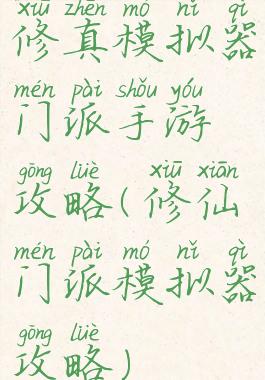 xiū zhēn mó nǐ qì
修真模拟器
mén pài shǒu yóu
门派手游
gōng lüè xiū xiān
攻略(修仙
mén pài mó nǐ qì
门派模拟器
gōng lüè
攻略)